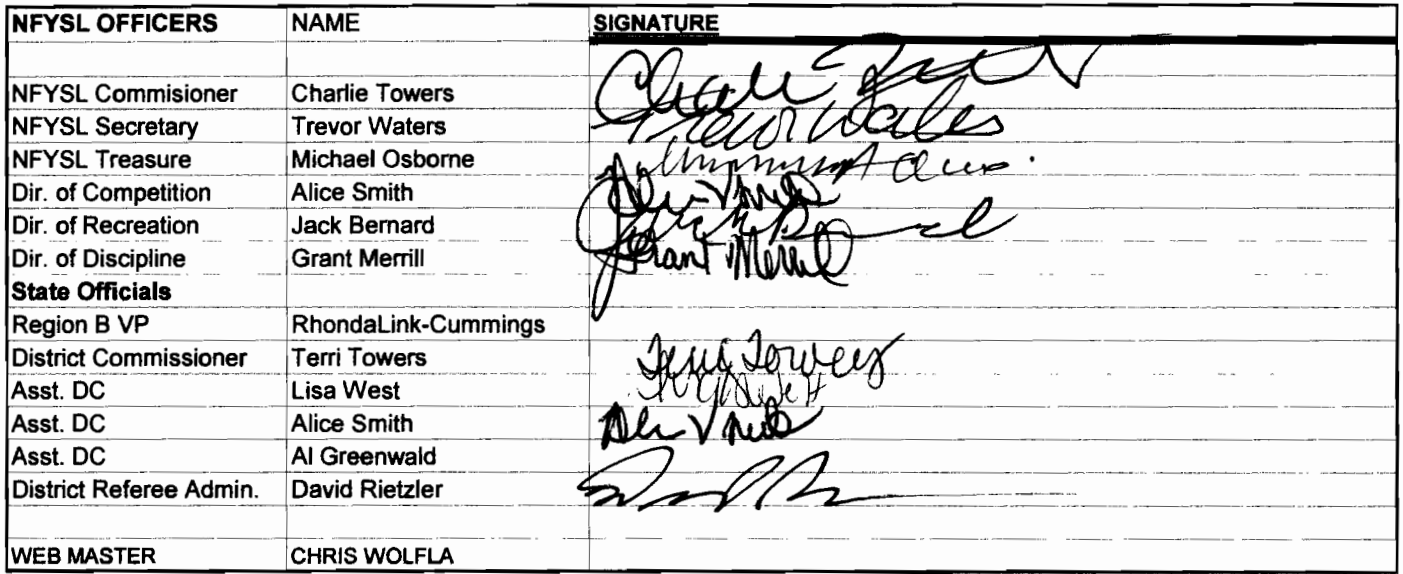 NFYSL OFFICERS NAME SIGNATURE
NFYSL Commisioner Charlie Towers
NFYSL Secretary Trevor Waters Trevor Wates
NFYSL Treasure Michael Osborne
Dir. of Competition Alice Smith
Dir. of Recreation Jack Bernard
Dir. of Discipline Grant Merrill Grant Merrill
State Officials
Region B VP RhondaLink-Cummings
District Commissioner Terri Towers
Asst. DC Lisa West
Asst. DC Alice Smith
Asst. DC Al Greenwald
District Referee Admin. David Rietzler
WEB MASTER CHRIS WOLFLA